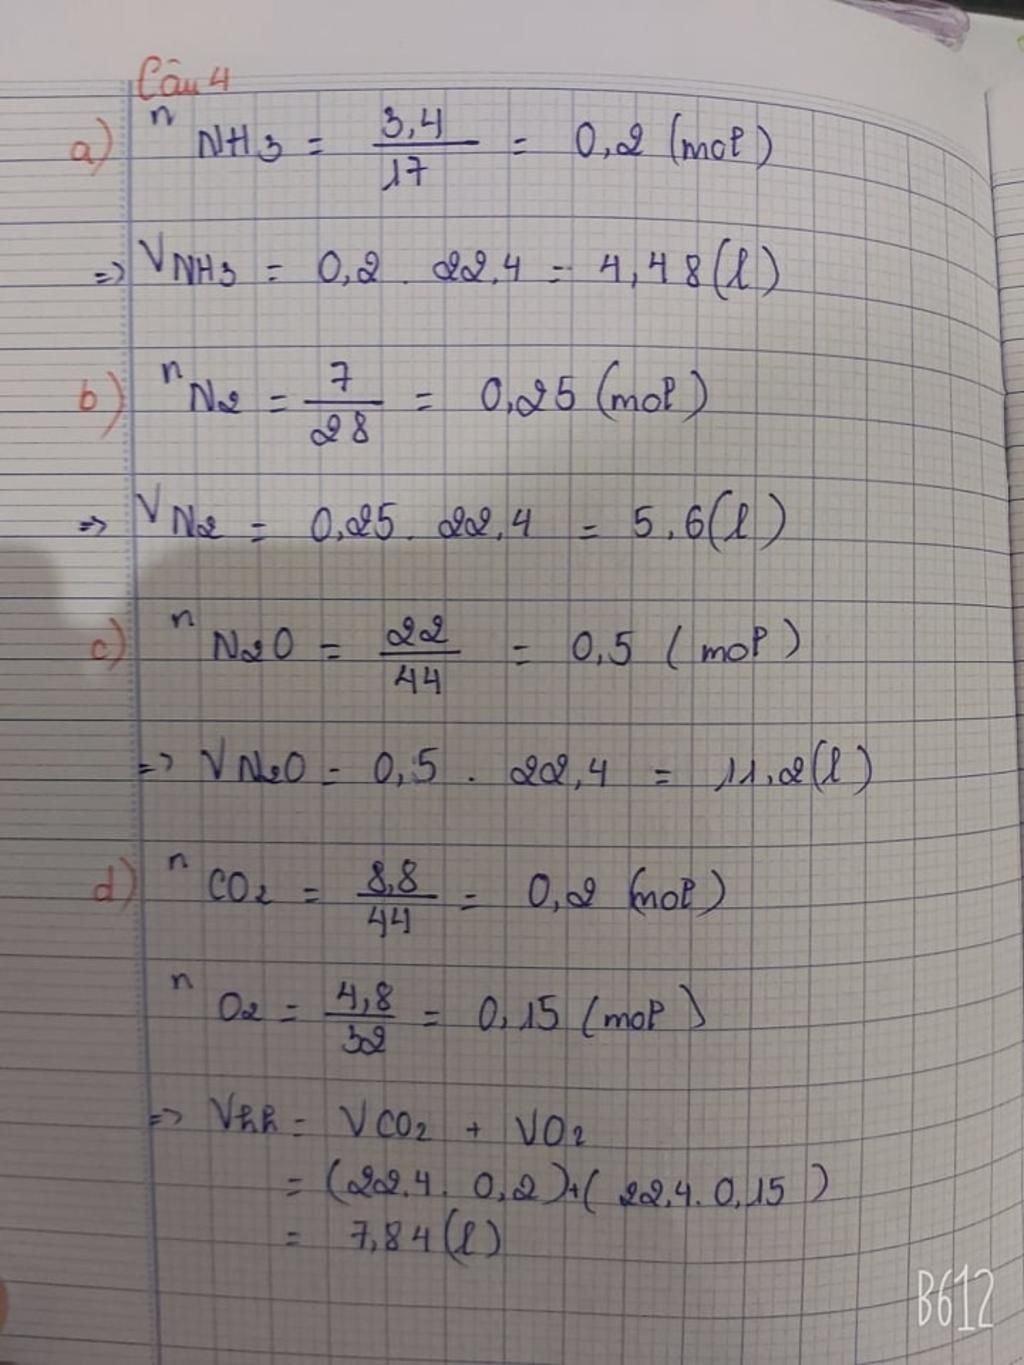 Câu 4
a) nNH3 = 3,4/17 = 0,2 (mol)
=> VNH3 = 0,2 . 22,4 = 4,48 (l)
b) nN2 = 7/28 = 0,25 (mol)
=> VN2 = 0,25 . 22,4 = 5,6 (l)
c) nN2O = 22/44 = 0,5 (mol)
=> VN2O = 0,5 . 22,4 = 11,2 (l)
d) nCO2 = 8,8/44 = 0,2 (mol)
nO2 = 4,8/32 = 0,15 (mol)
=> Vhh = VCO2 + VO2
= (22,4 . 0,2) + (22,4 . 0,15)
= 7,84 (l)
B612